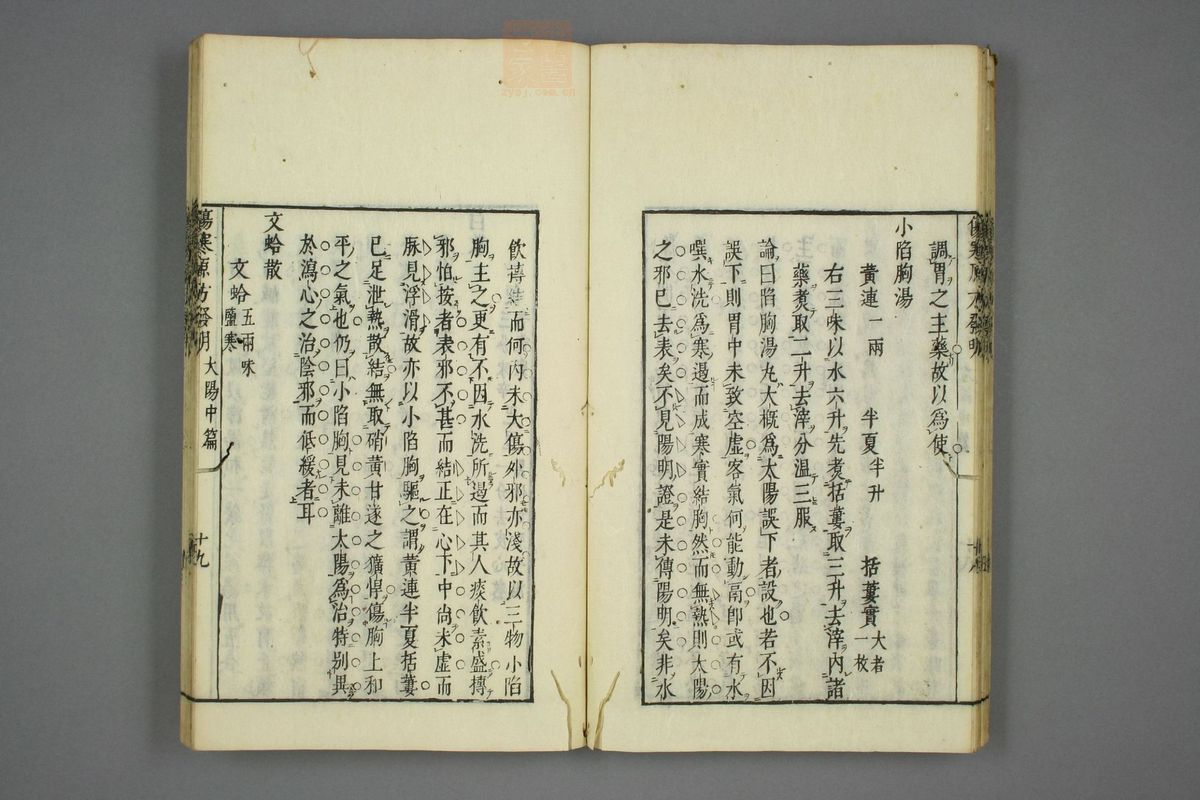 調胃之主藥故以爲使
小陷胸湯
黃連一兩 半夏半升 括蔞實大者一枚
右三味以水六升先煑括蔞取三升去滓內諸
藥煑取二升去滓分温三服
論曰陷胸湯丸大槪爲太陽誤下者設也若不因
誤下則胃中未致空虛客氣何能動鬲卽或有水
噀水洗爲寒遏而成寒實結胸然而無熱則太陽
之邪已去表矣不見陽明證是未傳陽明矣非水
飮摶結而何內未大傷外邪亦淺故以三物小陷
胸主之更有不因水洗所遏而其人痰飮素盛摶
邪怕按者表邪不甚而結正在心下中尙未虛而
脉見浮滑故亦以小陷胸驅之謂黃連半夏括蔞
已足泄熱散結無取硝黃甘遂之獷悍傷胸上和
平之氣也仍曰小陷胸見未離太陽爲治特別異
於瀉心之治陰邪而低緩者耳
文蛤散
文蛤五兩味鹽寒
傷寒源方發明 太陽中篇 十九
zyoj.com.cn